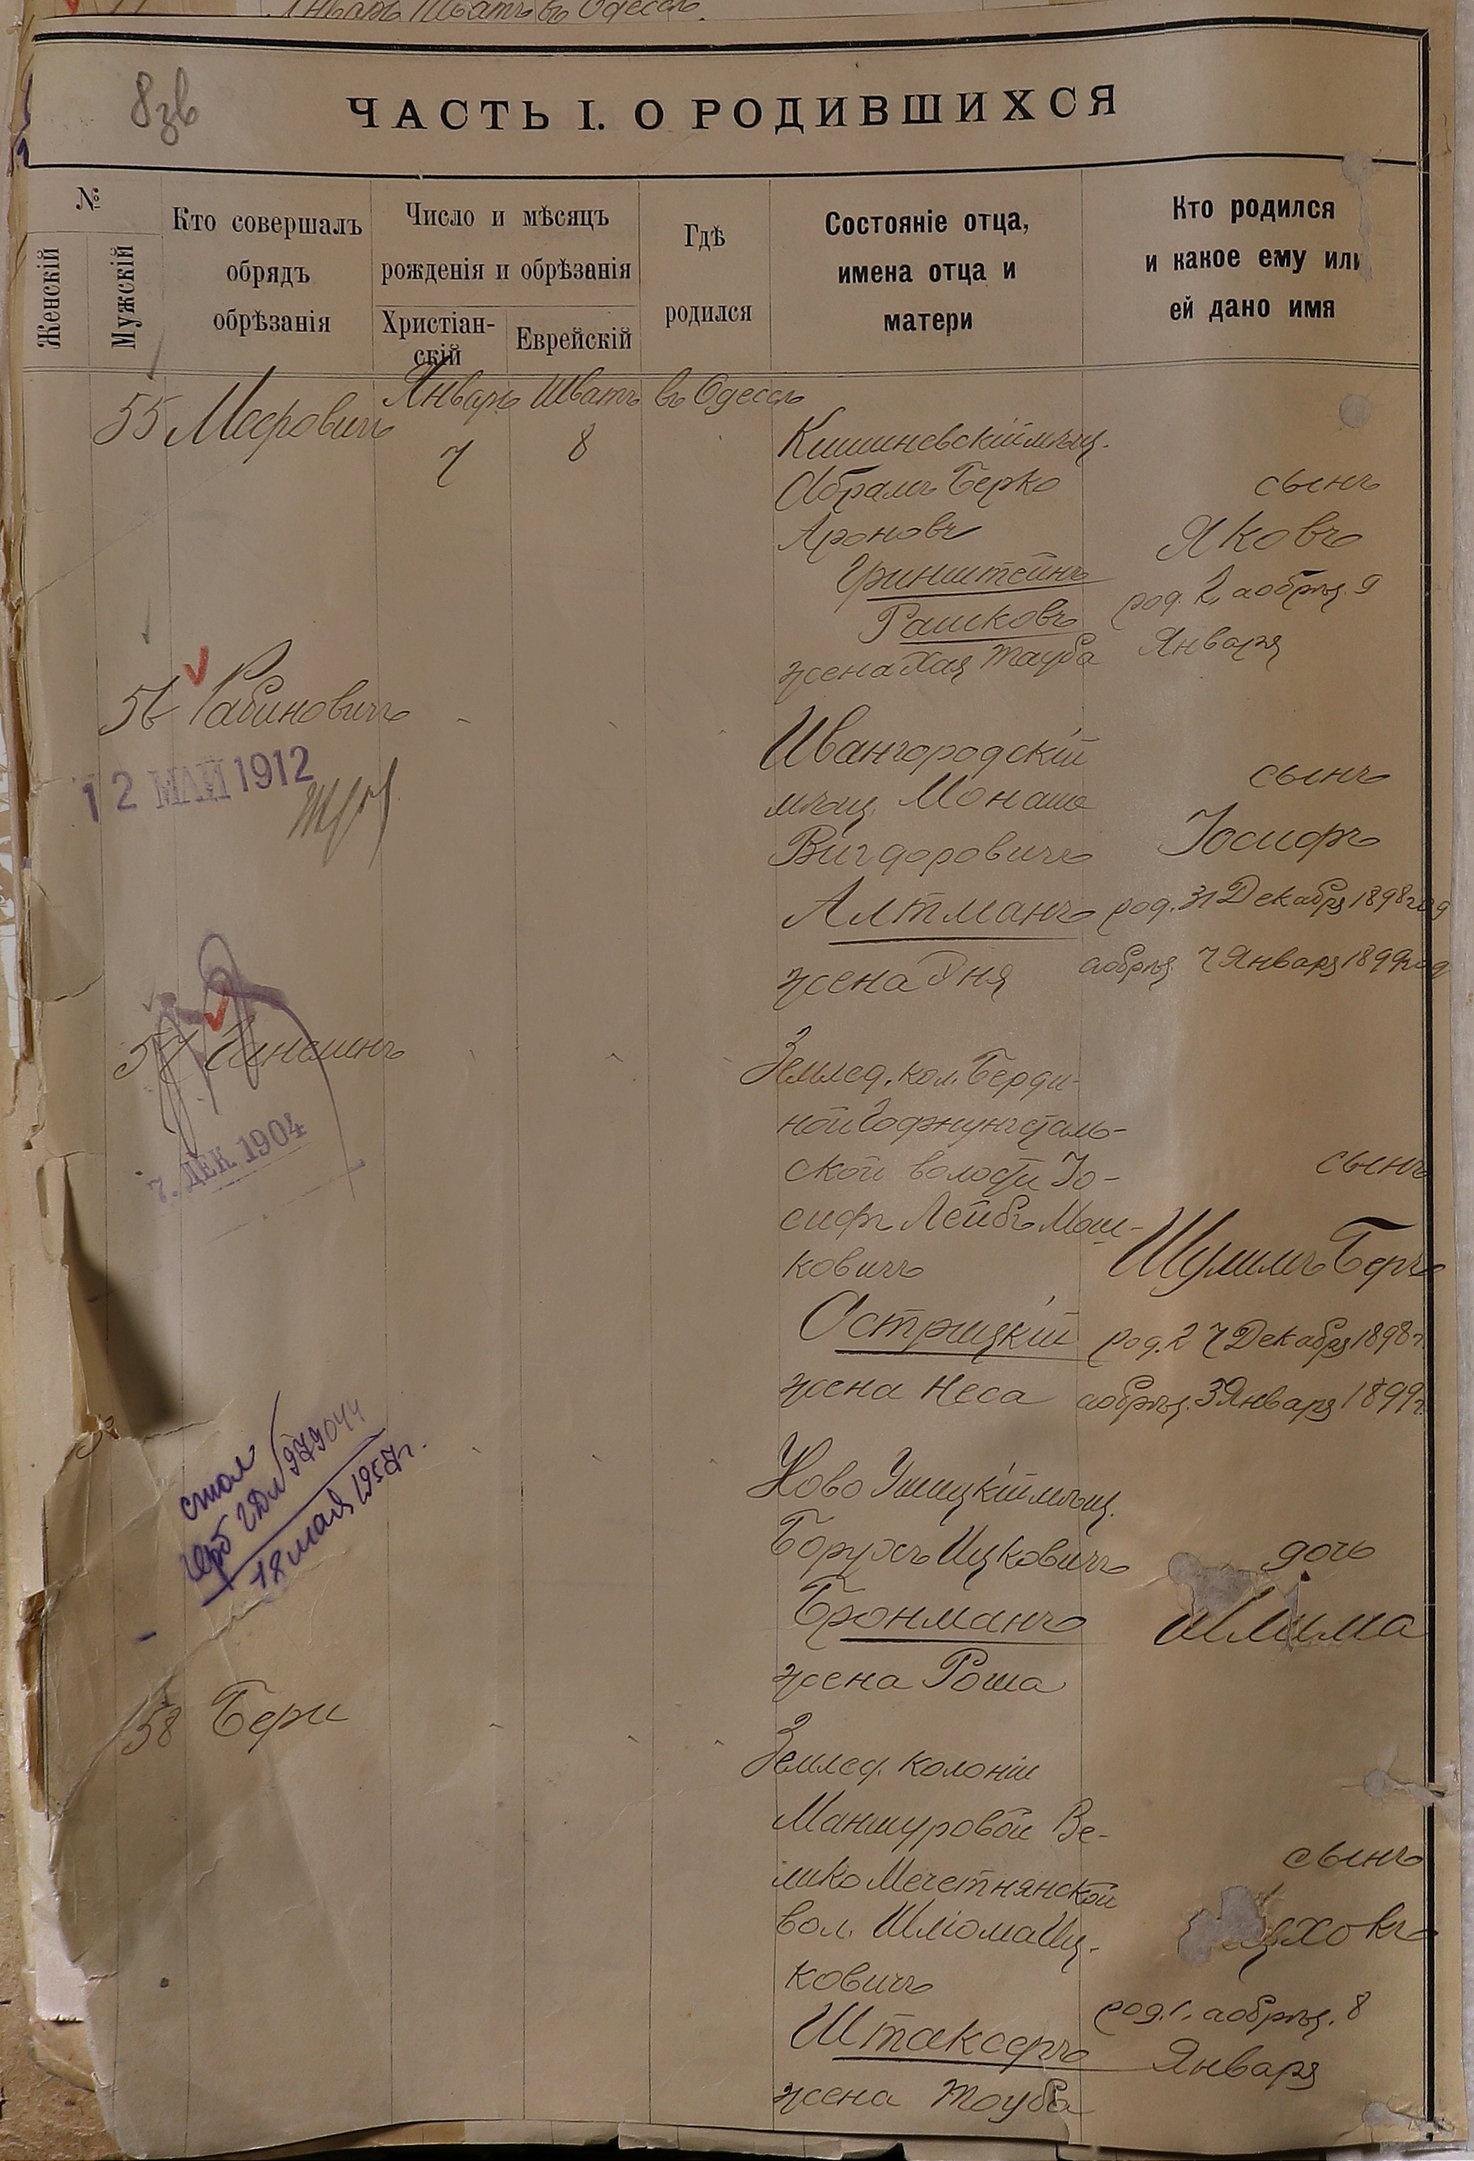 Январь Шватъ въ Одессѣ.
8зв
ЧАСТЬ I. О РОДИВШИХСЯ
№
Женскій
Мужскій
Кто совершалъ
обрядъ
обрѣзанія
Число и мѣсяцъ
рожденія и обрѣзанія
Христіан-
скій
Еврейскій
Гдѣ
родился
Состояніе отца,
имена отца и
матери
Кто родился
и какое ему или
ей дано имя
55 Меерович Январь Шватъ въ Одессѣ
7 8
Кишиневскій мѣщ.
Абрамъ Берко
Ароновъ
Гринштейнъ
Рашковъ
жена Хая Тауба
сынъ
Яковъ
род. 2, а обрѣз. 9
Января
56 Рабиновичъ
12 МАЙ 1912
Ивангородскій
мѣщ. Монаше
Вигдоровичъ
Алтманъ
жена Эня
сынъ
Іосифъ
род. 31 Декабря 1898 год
а обрѣз. 7 Января 1899 год
57
7. ДЕК. 1904
Землед. кол. Берди-
ной
ской волости Іо-
сифъ Лейбъ Мош-
ковичъ
Острицкій
жена Неса
сынъ
Шулимъ Беръ
род. 27 Декабря 1898 г.
а обрѣз. 3 Января 1899 г.
18 мая 1957 г.
Ново Ушицкій мѣщ.
Борухъ Ицковичъ
Бронманъ
жена Роша
дочь
58 Бери
Землед. колоніи
Маншуровой Ве-
лико Мечетнянской
вол. Шліома Иц-
ковичъ
Штаксеръ
жена Тоуба
сынъ
род. 1, а обрѣз. 8
Января